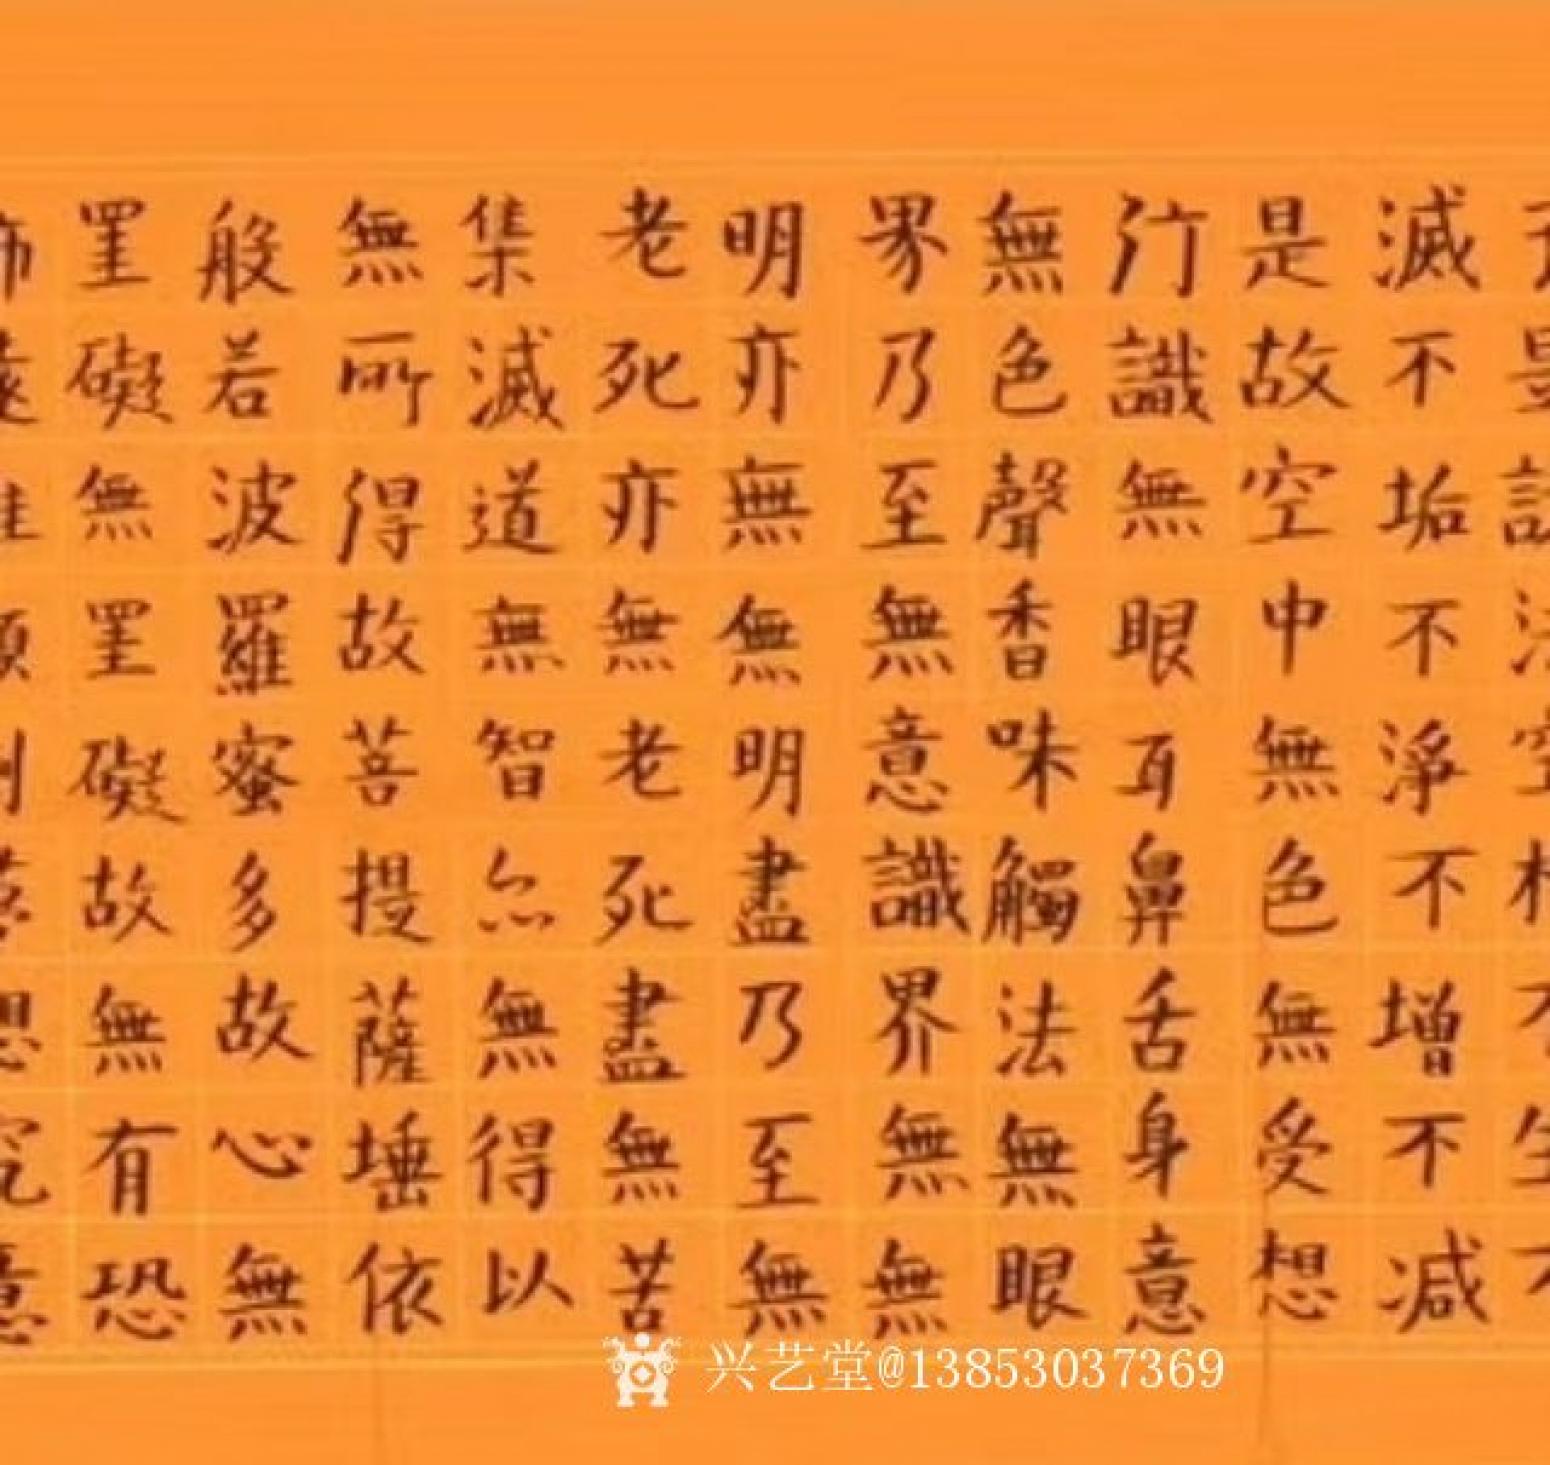 滅不垢不淨不增不減
是故空中無色無受想
行識無眼耳鼻舌身意
無色聲香味觸法無眼
界乃至無意識界無無
明亦無無明盡乃至無
老死亦無老死盡無苦
集滅道無智亦無得以
無所得故菩提薩埵依
般若波羅蜜多故心無
罣礙無罣礙故無有恐
兴艺堂@13853037369